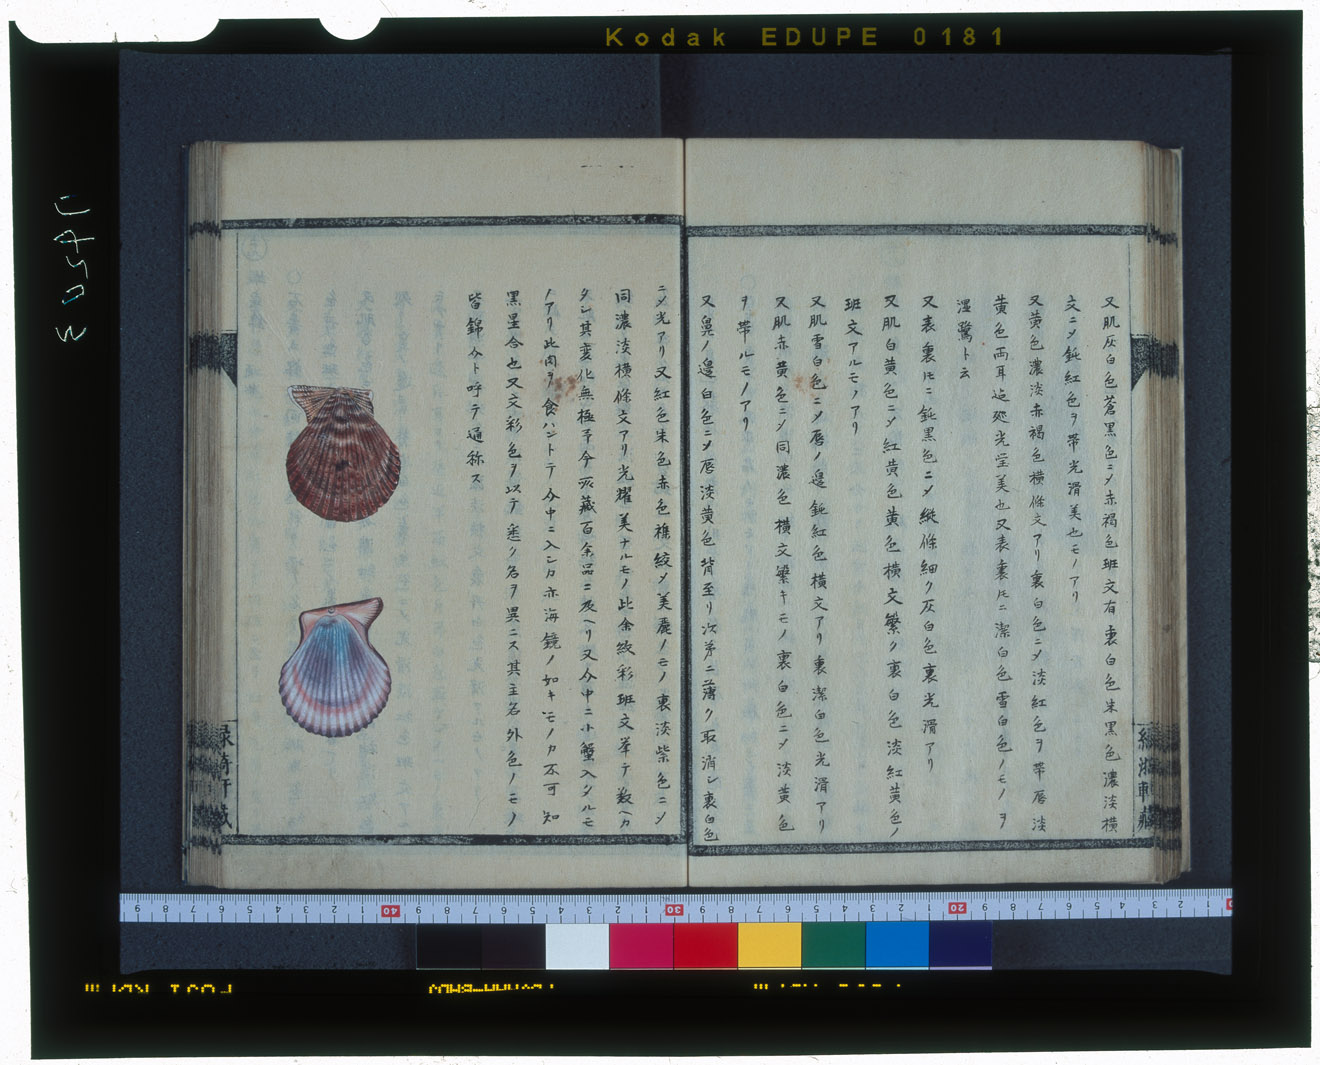 Kodak EDUPE 0181
又肌灰白色蒼黒色ニメ赤褐色班文有裏白色朱黒色濃淡横
文ニメ鈍紅色ヲ帯光滑美也モノアリ
又黄色濃淡赤褐色横條文アリ裏白色ニメ淡紅色ヲ帯唇淡
黄色両耳辺処光瑩美也又表裏𪜈ニ潔白色雪白色ノモノヲ
漟鷺ト云
又表裏𪜈ニ鈍黒色ニメ縦條細ク灰白色裏光滑アリ
又肌白黄色ニメ紅黄色黄色横文繁ク裏白色淡紅黄色ノ
班文アルモノアリ
又肌雪白色ニメ唇ノ邉鈍紅色横文アリ裏潔白色光滑アリ
又肌赤黄色ニメ同濃色横文繁キモノ裏白色ニメ淡黄色
ヲ帯ルモノアリ
又鼻ノ邉白色ニメ唇淡黄色背至リ次第ニ薄ク取消シ裏白色
ニメ光アリ又紅色朱色赤色樵絞メ美麗ノモノ裏淡柴色ニメ
同濃淡横條文アリ光耀美ナルモノ此余紋彩班文挙テ数ヘカ
タシ其変化無極予今所蔵百余品ニ及ヘリ又介中ニ小蟹入タルモ
ノアリ此肉ヲ食ハントテ介中ニ入シカ亦海鏡ノ如キモノカ不可知
黒星合也又文彩色ヲ以テ悉ク名ヲ異ニス其主名外色ノモノ
皆錦介ト呼テ通称ス